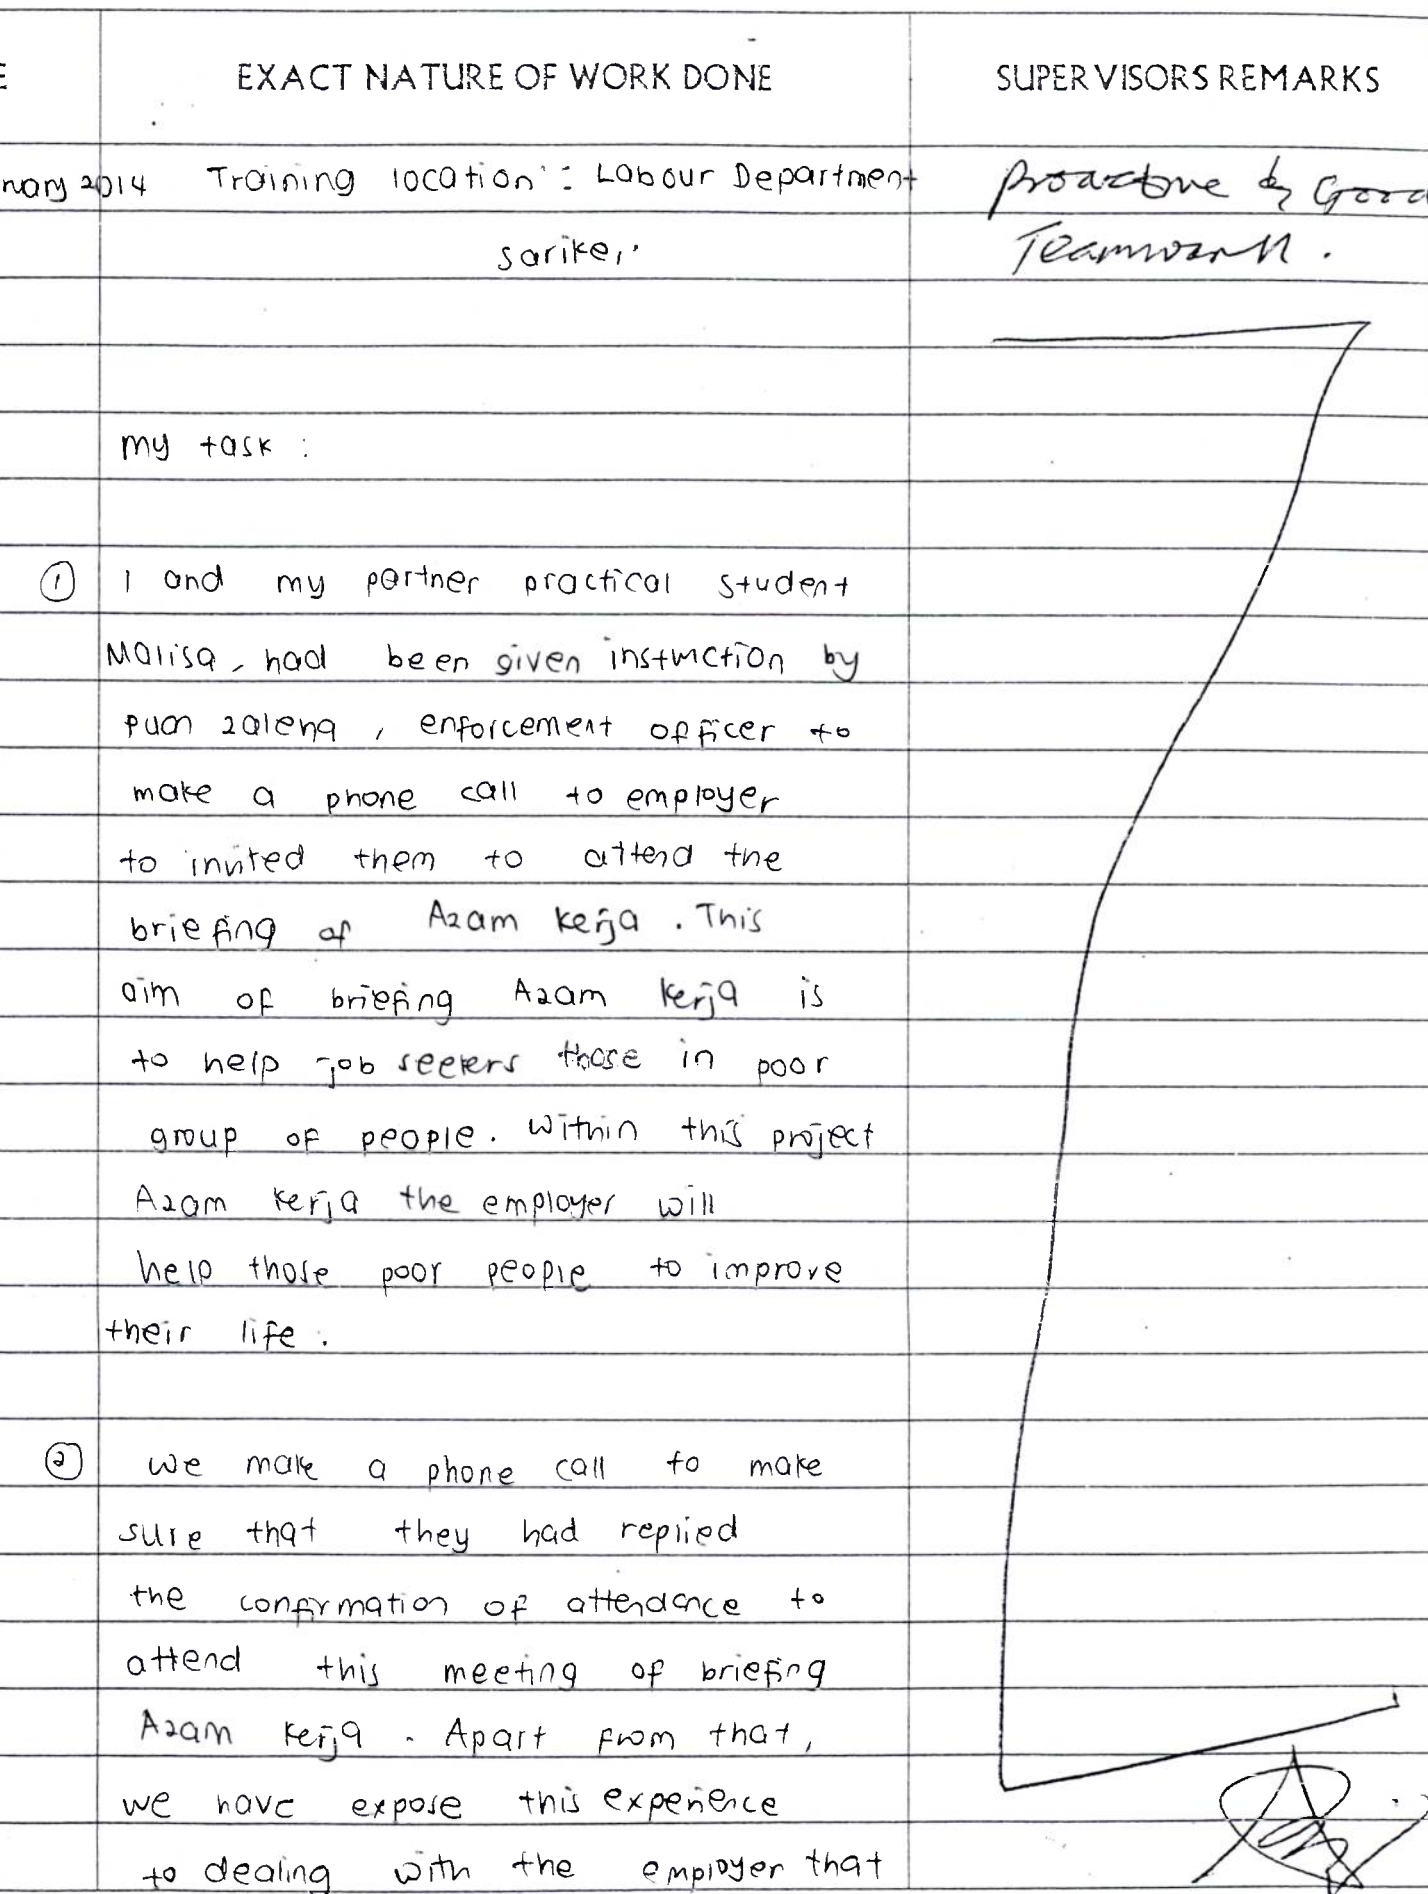 E EXACT NATURE OF WORK DONE SUPERVISORS REMARKS
nary 2014 Training location : Labour Department Proactive & Good
sarikei. Teamwork.
my task :
① I and my partner practical student
Malisa, had been given instruction by
puan zalena, enforcement officer to
make a phone call to employer
to invited them to attend the
briefing of Azam kerja. This
aim of briefing Azam kerja is
to help job seekers those in poor
group of people. Within this project
Azam kerja the employer will
help those poor people to improve
their life.
② we make a phone call to make
sure that they had replied
the confirmation of attendance to
attend this meeting of briefing
Azam kerja. Apart from that,
we have expose this experience
to dealing with the employer that